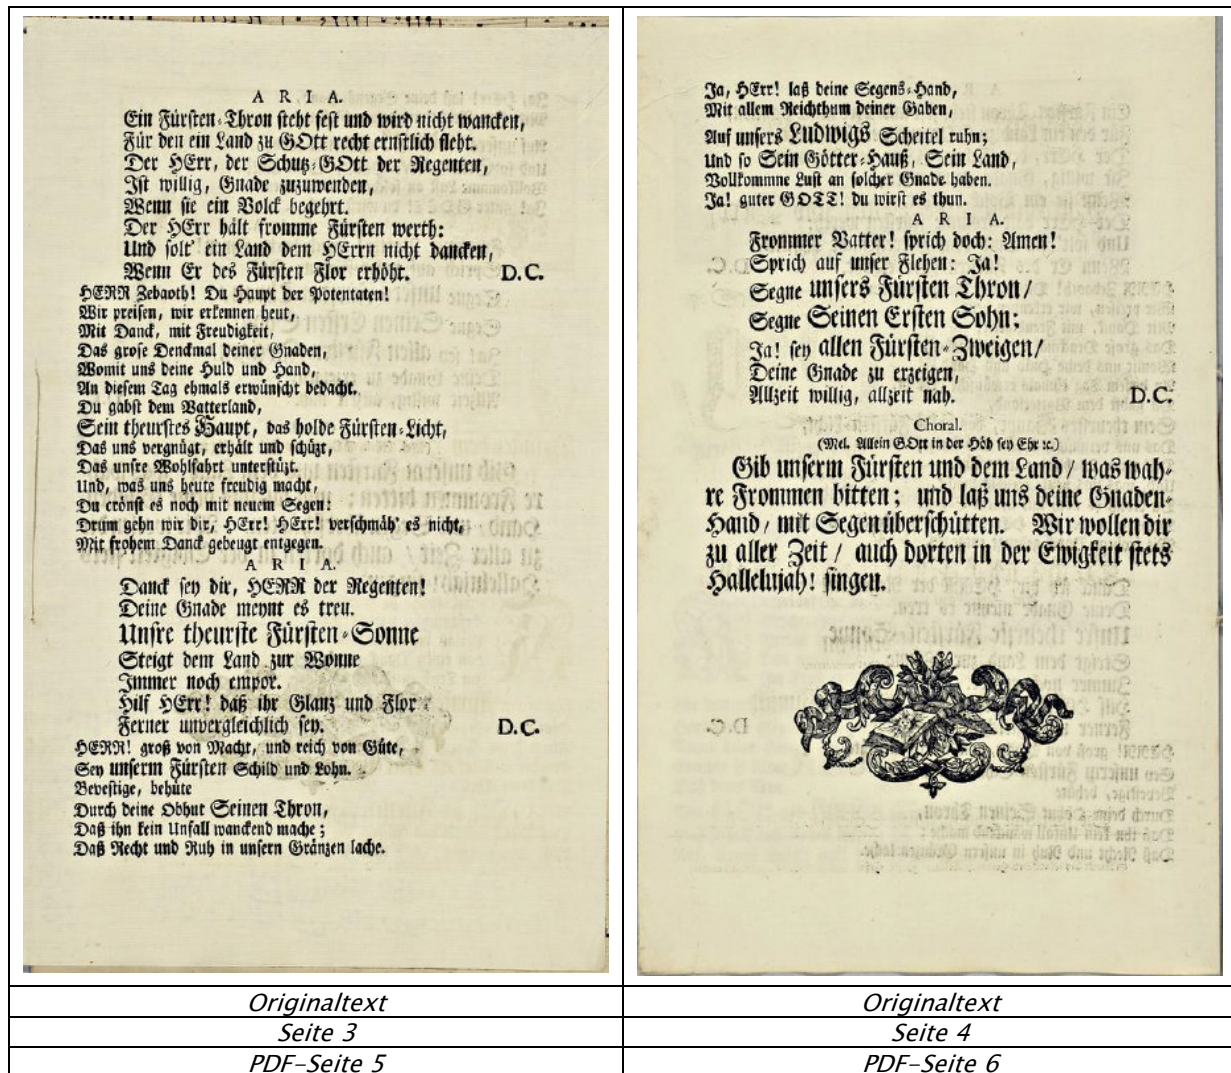 A R I A.
Ein Fürsten-Thron steht fest und wird nicht wancken,
Für den ein Land zu GOtt recht ernstlich fleht.
Der HErr, der Schutz-GOtt der Regenten,
Ist willig, Gnade zuzuwenden,
Wenn sie ein Volck begehrt.
Der HErr hält fromme Fürsten werth:
Und solt' ein Land dem HErrn nicht dancken,
Wenn Er des Fürsten Flor erhöht. D.C.
HERR Zebaoth! Du Haupt der Potentaten!
Wir preisen, wir erkennen heut,
Mit Danck, mit Freudigkeit,
Das grose Denckmal deiner Gnaden,
Womit uns deine Huld und Hand,
An diesem Tag ehmals erwünscht bedacht.
Du gabst dem Vatterland,
Sein theurstes Haupt, das holde Fürsten-Licht,
Das uns vergnügt, erhält und schüzt,
Das unsre Wohlfahrt unterstüzt.
Und, was uns heute freudig macht,
Du crönst es noch mit neuem Segen:
Drum gehn wir dir, HErr! HErr! verschmäh' es nicht,
Mit frohem Danck gebeugt entgegen.
A R I A.
Danck sey dir, HERR der Regenten!
Deine Gnade meynt es treu.
Unsre theurste Fürsten-Sonne
Steigt dem Land zur Wonne
Immer noch empor.
Hilf HErr! daß ihr Glanz und Flor
Ferner unvergleichlich sey. D.C.
HERR! groß von Macht, und reich von Güte,
Sey unserm Fürsten Schild und Lohn.
Bevestige, behüte
Durch deine Obhut Seinen Thron,
Daß ihn kein Unfall wanckend mache;
Daß Recht und Ruh in unsern Gränzen lache.
Originaltext
Seite 3
PDF-Seite 5
Ja, HErr! laß deine Segens-Hand,
Mit allem Reichthum deiner Gaben,
Auf unsers Ludwigs Scheitel ruhn;
Und so Sein Götter-Hauß, Sein Land,
Vollkommne Lust an solcher Gnade haben.
Ja! guter GOTT! du wirst es thun.
A R I A.
Frommer Vatter! sprich doch: Amen!
Sprich auf unser Flehen: Ja!
Segne unsers Fürsten Thron/
Segne Seinen Ersten Sohn;
Ja! sey allen Fürsten-Zweigen/
Deine Gnade zu erzeigen,
Allzeit willig, allzeit nah. D.C.
Choral.
(Mel. Allein GOtt in der Höh sey Ehr ꝛc.)
Gib unserm Fürsten und dem Land / was wah-
re Frommen bitten; und laß uns deine Gnaden-
Hand / mit Segen überschütten. Wir wollen dir
zu aller Zeit / auch dorten in der Ewigkeit stets
Hallelujah! singen.
Originaltext
Seite 4
PDF-Seite 6